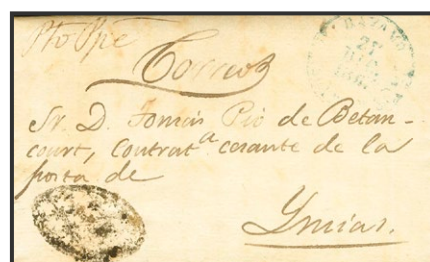 Pto Ppe
BAYAMO
27
Correos
Sr. D. Tomás Pio de Betan-
court, Contrat.a cesante de la
posta de
Ymias.